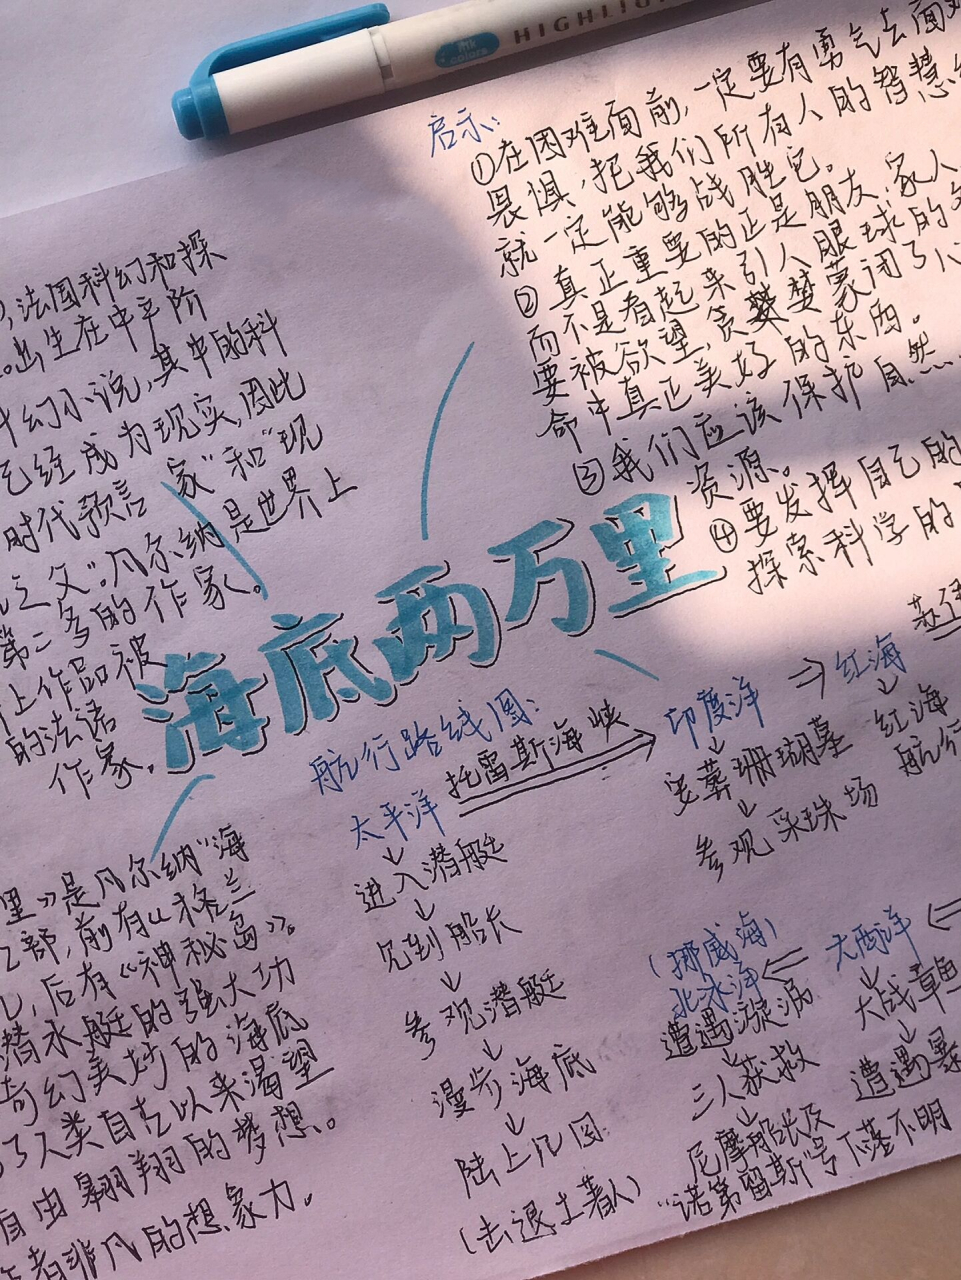 HIGHLIG
milk colors
启示:
①在困难面前,一定要有勇气去面对
畏惧,把我们所有人的智慧
就一定能够战胜它。
②真正重要的正是朋友,家人
而不是看起来引人眼球的
要被欲望,贪婪蒙闭了心
命中真正美好的东西。
③我们应该保护自然
资源。
④要发挥自己的
探索科学的
,法国科幻和探
出生在中产阶
科幻小说,其中的科
已经成为现实,因此
时代预言家”和“现
之父”。凡尔纳是世界上
第二多的作家。
上作品被
的法语
作家。
海底两万里
里》是凡尔纳“海
部,前有《格兰
,后有《神秘岛》。
潜水艇的强大功
奇幻美妙的海底
了人类自古以来渴望
自由翱翔的梦想。
者非凡的想象力。
航行路线图:
太平洋
托雷斯海峡
印度洋
红海
进入潜艇
见到船长
参观潜艇
漫步海底
陆上几日
(击退土著人)
安葬珊瑚墓
参观采珠场
红海
航行
大西洋
大战章鱼
遭遇暴
(挪威海)
北冰洋
遭遇漩涡
三人获救
尼摩船长及
“诺第留斯”号下落不明